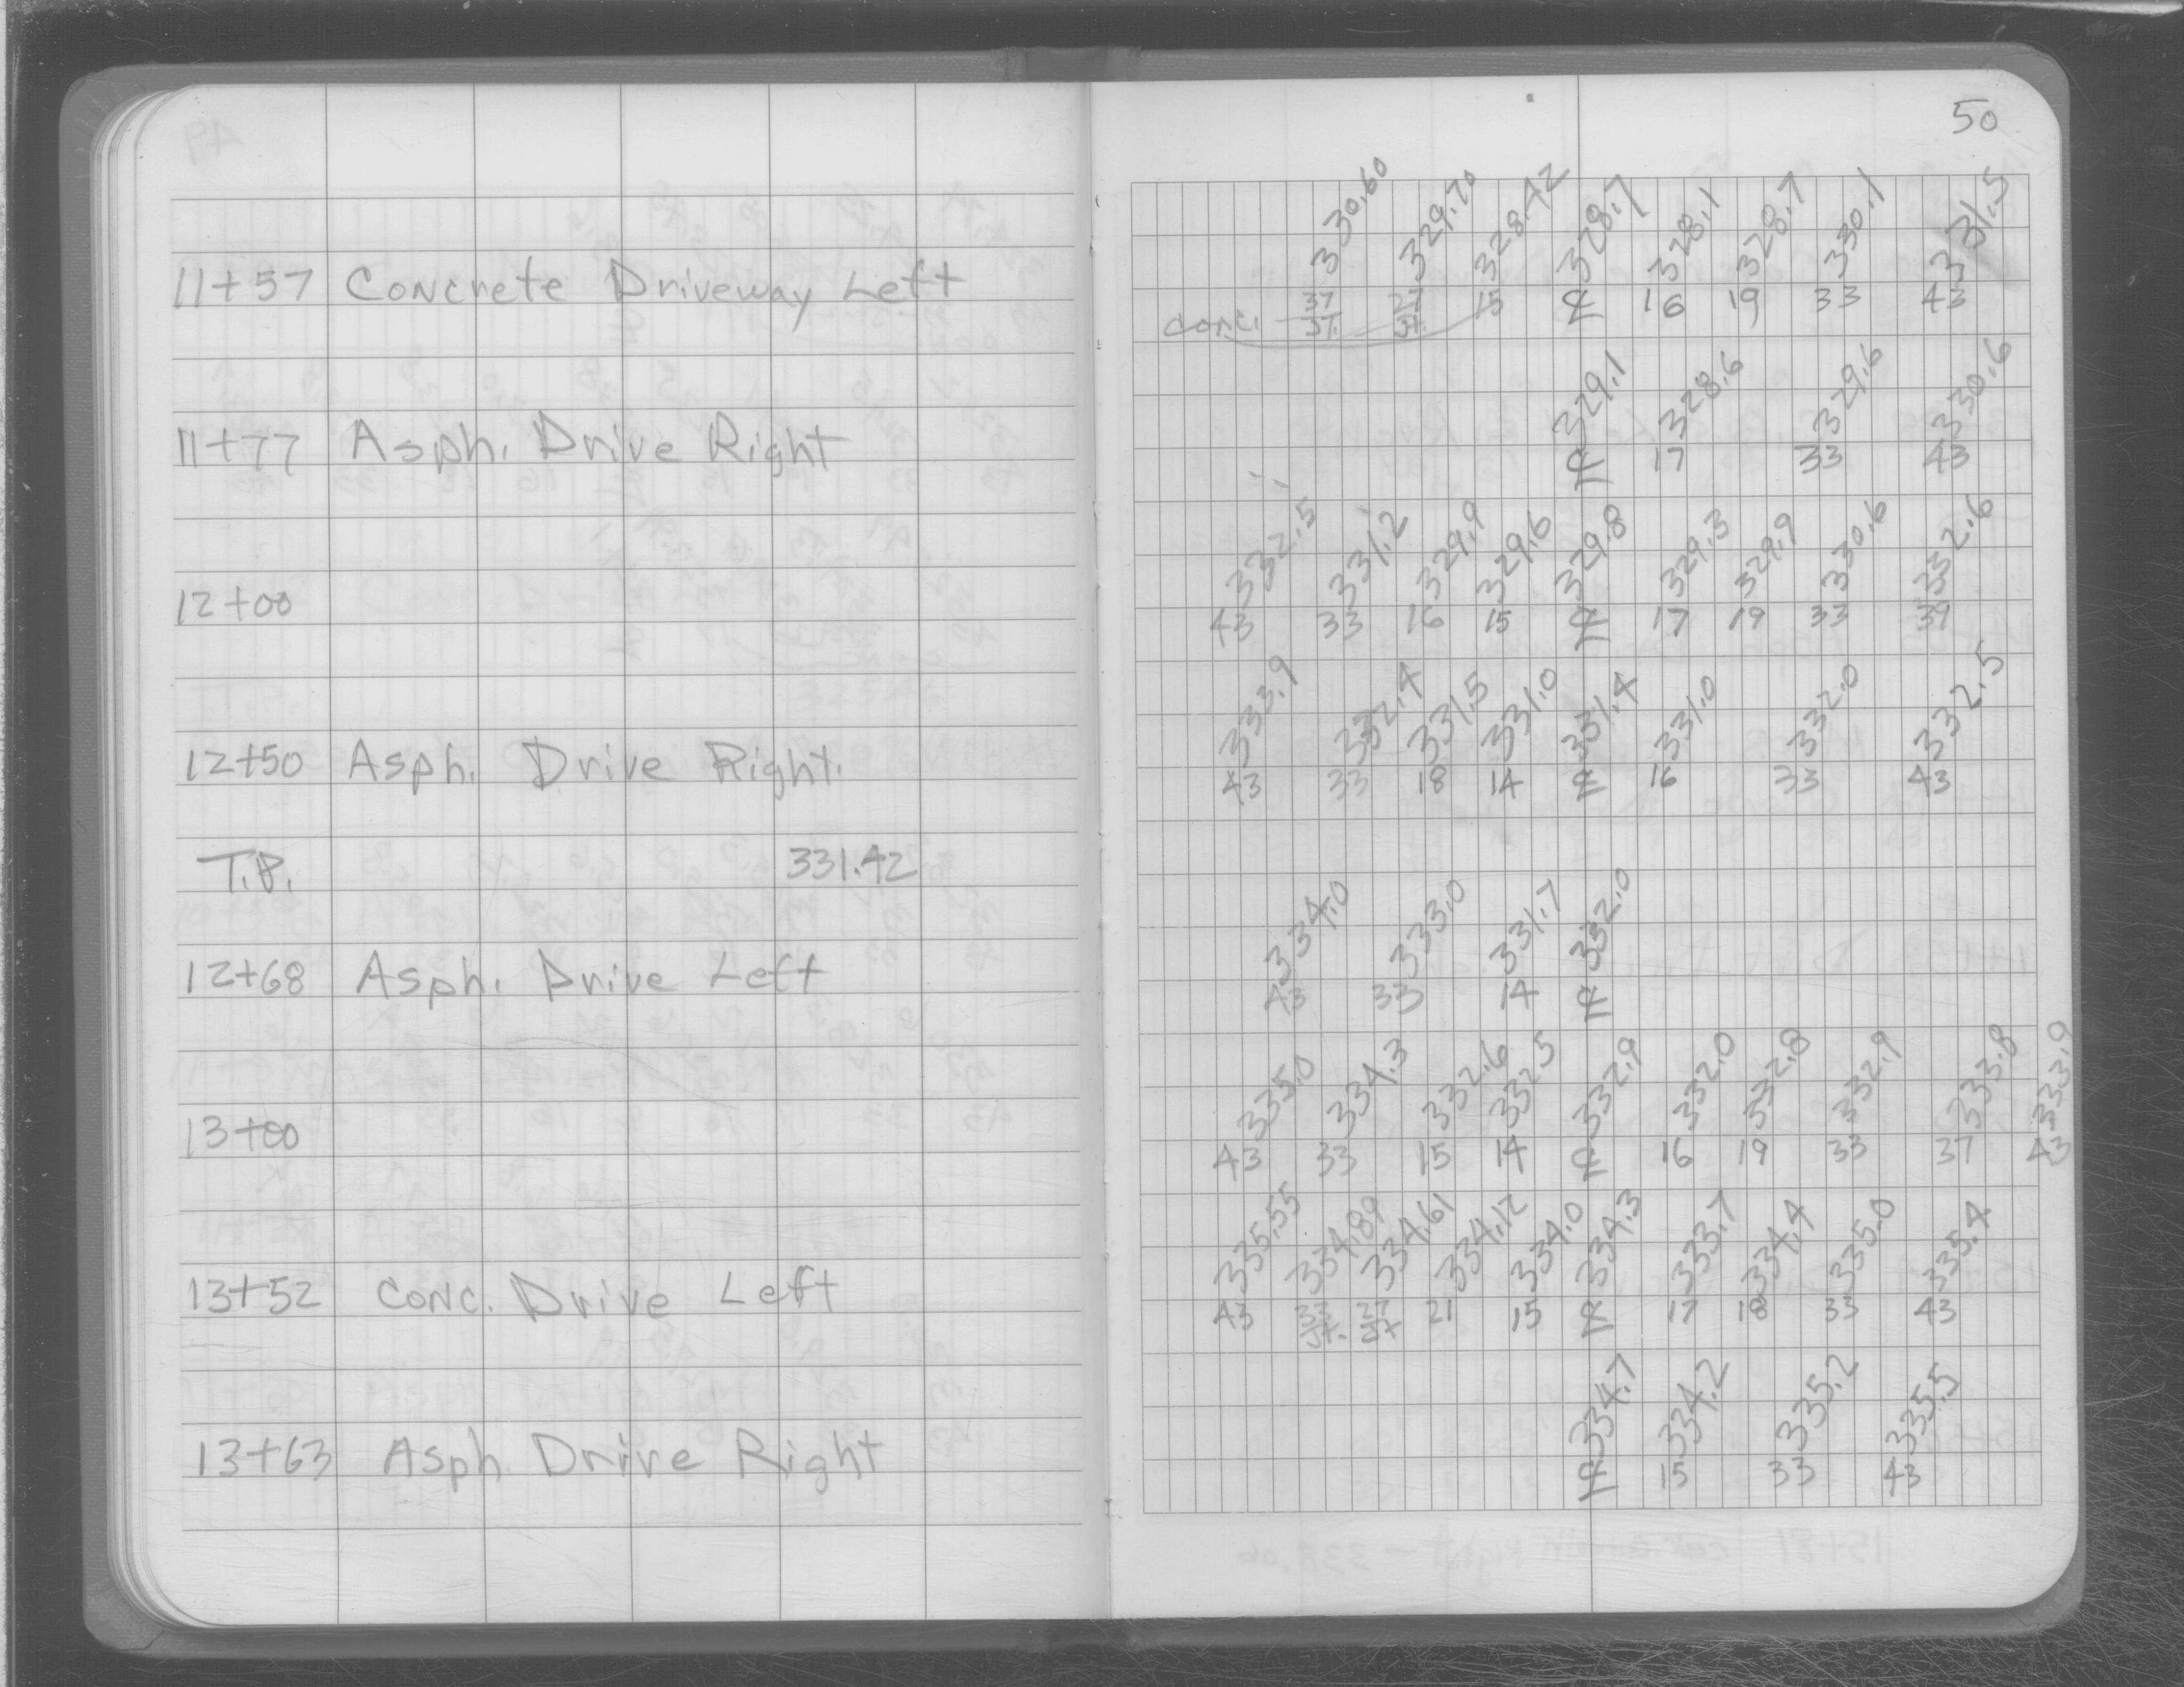 50
330.60 329.70 328.42 328.7 328.1 328.7 330.1 331.5
11+57 Concrete Driveway Left
conc. 37 27 15 ℄ 16 19 33 43
Jt. Jt.
329.1 328.6 329.6 330.6
11+77 Asph. Drive Right
℄ 17 33 43
332.5 331.2 329.9 329.6 329.8 329.3 329.9 330.6 332.6
12+00
43 33 16 15 ℄ 17 19 33 39
333.9 332.4 331.5 331.0 331.4 331.0 332.0 332.5
12+50 Asph. Drive Right.
43 33 18 14 ℄ 16 33 43
T.P. 331.42
334.0 333.0 331.7 332.0
12+68 Asph. Drive Left
43 33 14 ℄
335.0 334.3 332.6 332.5 332.9 332.0 332.8 332.9 333.8 333.9
13+00
43 33 15 14 ℄ 16 19 33 37 43
335.55 334.89 334.61 334.12 334.0 334.3 333.7 334.4 335.0 335.4
13+52 Conc. Drive Left
43 33 27 21 15 ℄ 17 18 33 43
Jt. Jt
334.7 334.2 335.2 335.5
13+63 Asph Drive Right
℄ 15 33 43